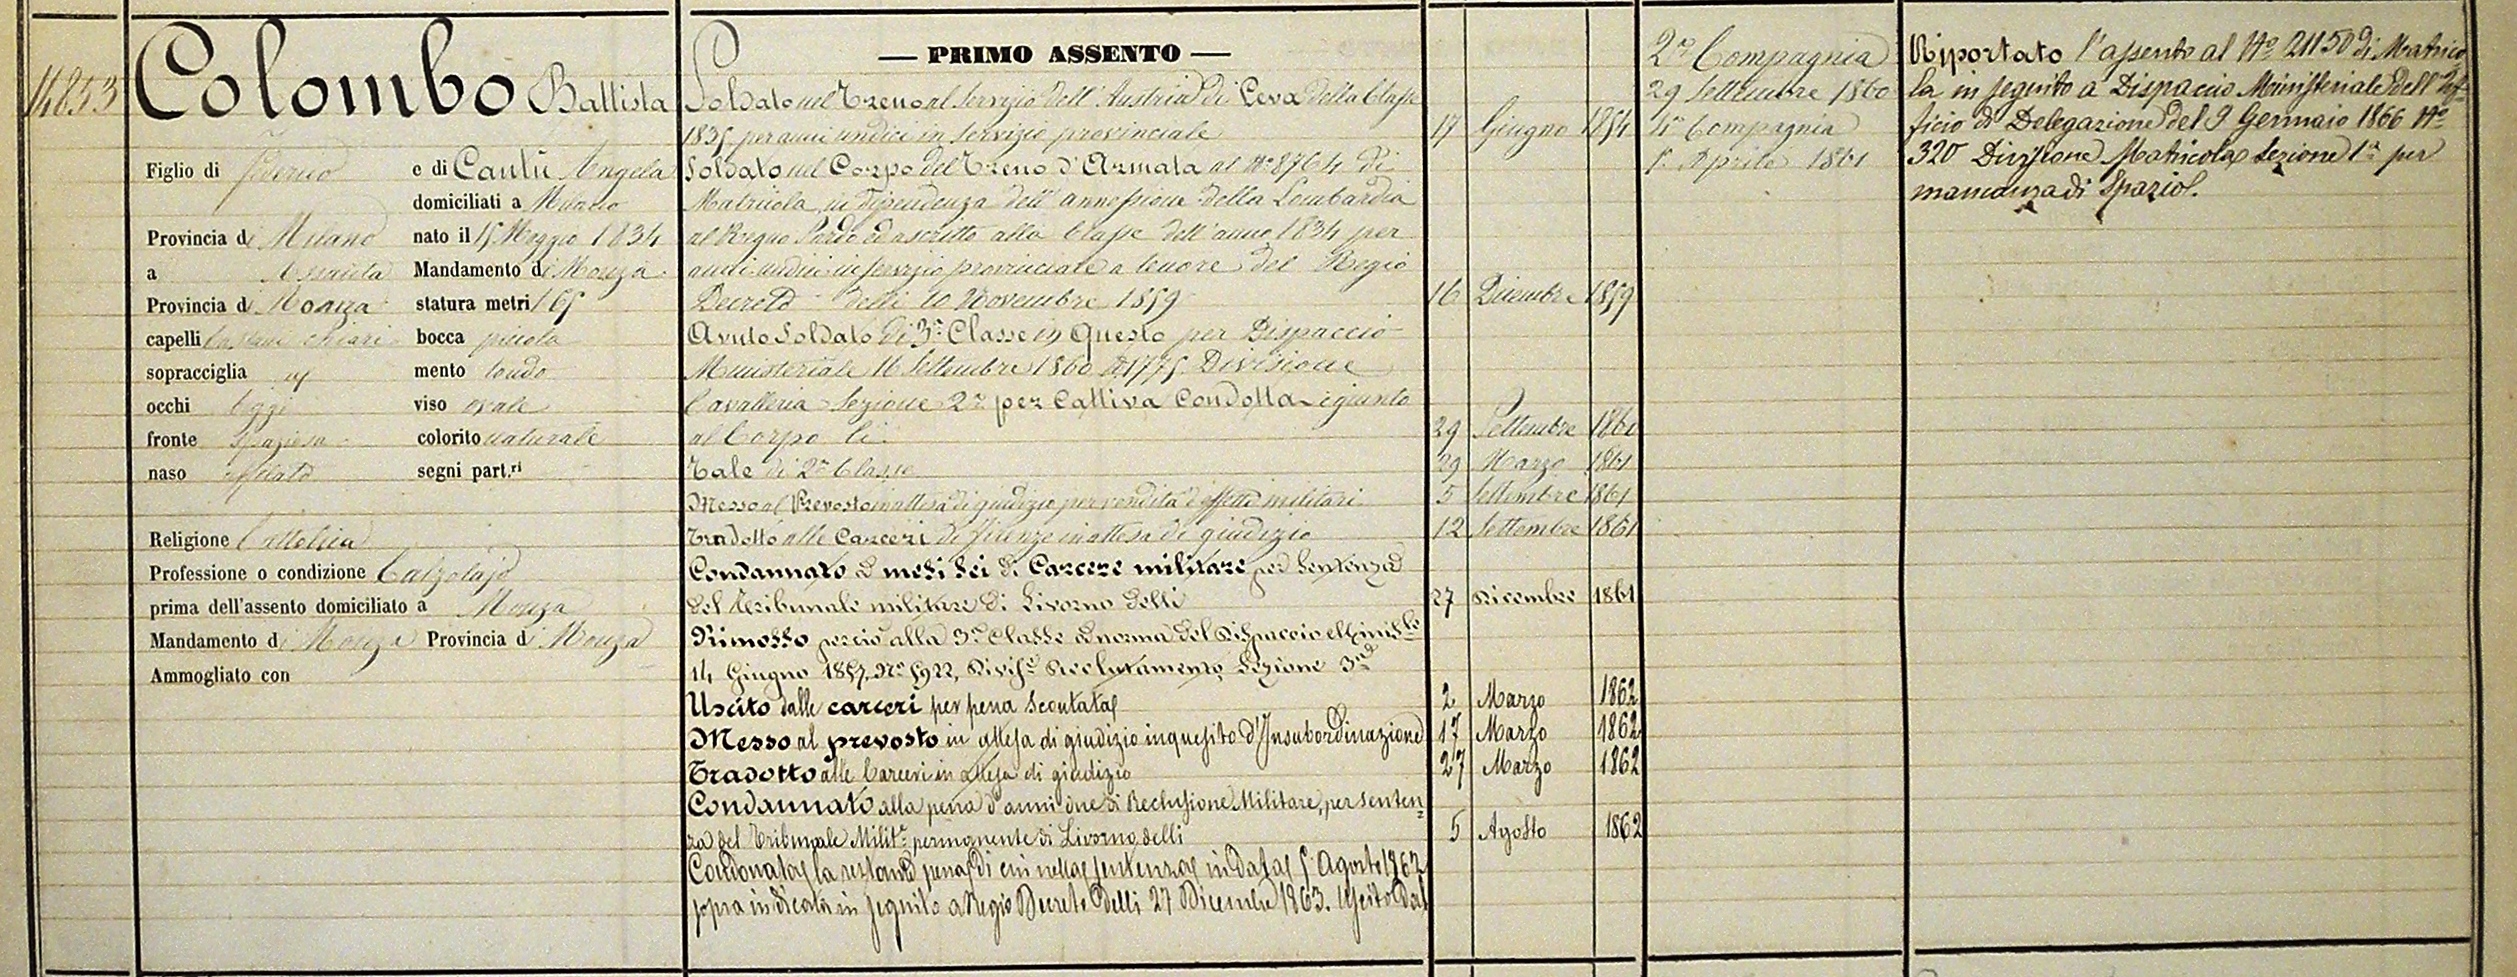 14853
Colombo Battista
Figlio di e di Cantù Angela
domiciliati a Milano
Provincia di Milano nato il 15 Maggio 1834
a Mandamento di Monza
Provincia di Monza statura metri 1 65
capelli castani chiari bocca piccola
sopracciglia mento tondo
occhi bigi viso ovale
fronte spaziosa colorito naturale
naso affilato segni part.ri
Religione Cattolica
Professione o condizione Calzolajo
prima dell'assento domiciliato a Monza
Mandamento di Monza Provincia di Monza
Ammogliato con
— PRIMO ASSENTO —
Soldato nel Treno al servizio dell'Austria di Leva della Classe
1835 per anni undici in servizio provinciale 17 Giugno 1854
Soldato nel Corpo del Treno d'Armata al No 8764 di
Matricola in dipendenza dell'annessione della Lombardia
al Regno Sardo ed ascritto alla Classe dell'anno 1834 per
anni undici in servizio provinciale a tenore del Regio
Decreto delli 10 Novembre 1859 16 Dicembre 1859
Avuto Soldato di 3a Classe in Questo per Dispaccio
Ministeriale 16 Settembre 1860 No 1775 Divisione
Cavalleria Sezione 2a per Cattiva Condotta e giunto
al Corpo li 29 Settembre 1860
Tale di 2a Classe 29 Marzo 1861
Messo al Prevosto in attesa di giudizio per vendita d'effetti militari 5 Settembre 1861
Tradotto alle Carceri di Firenze in attesa di giudizio 12 Settembre 1861
Condannato a mesi sei di Carcere militare per Sentenza
del Tribunale militare di Livorno delli 27 Dicembre 1861
Rimosso perciò alla 3a Classe a norma del Dispaccio Minis.le
14 Giugno 1857, No 5922, Divis.e Reclutamento, Sezione 3a
Uscito dalle carceri per pena scontata 2 Marzo 1862
Messo al prevosto in attesa di giudizio inquisito d'Insubordinazione 17 Marzo 1862
Tradotto alle Carceri in attesa di giudizio 27 Marzo 1862
Condannato alla pena d'anni due di Reclusione Militare, per senten=
za del Tribunale Milit.e permanente di Livorno delli 5 Agosto 1862
Condonata la restante pena di cui nella sentenza in data 5 Agosto 1862
sopra indicata in seguito a Regio Decreto delli 27 Dicembre 1863. Uscito dal
2a Compagnia
29 Settembre 1860
Compagnia
1o Aprile 1861
Riportato l'assento al No 21150 di Matrico
la in seguito a Dispaccio Ministeriale dell'Uf=
ficio di Delegazione del 9 Gennaio 1866 No
320 Divisione Matricola Sezione 1a per
mancanza di Spazio.